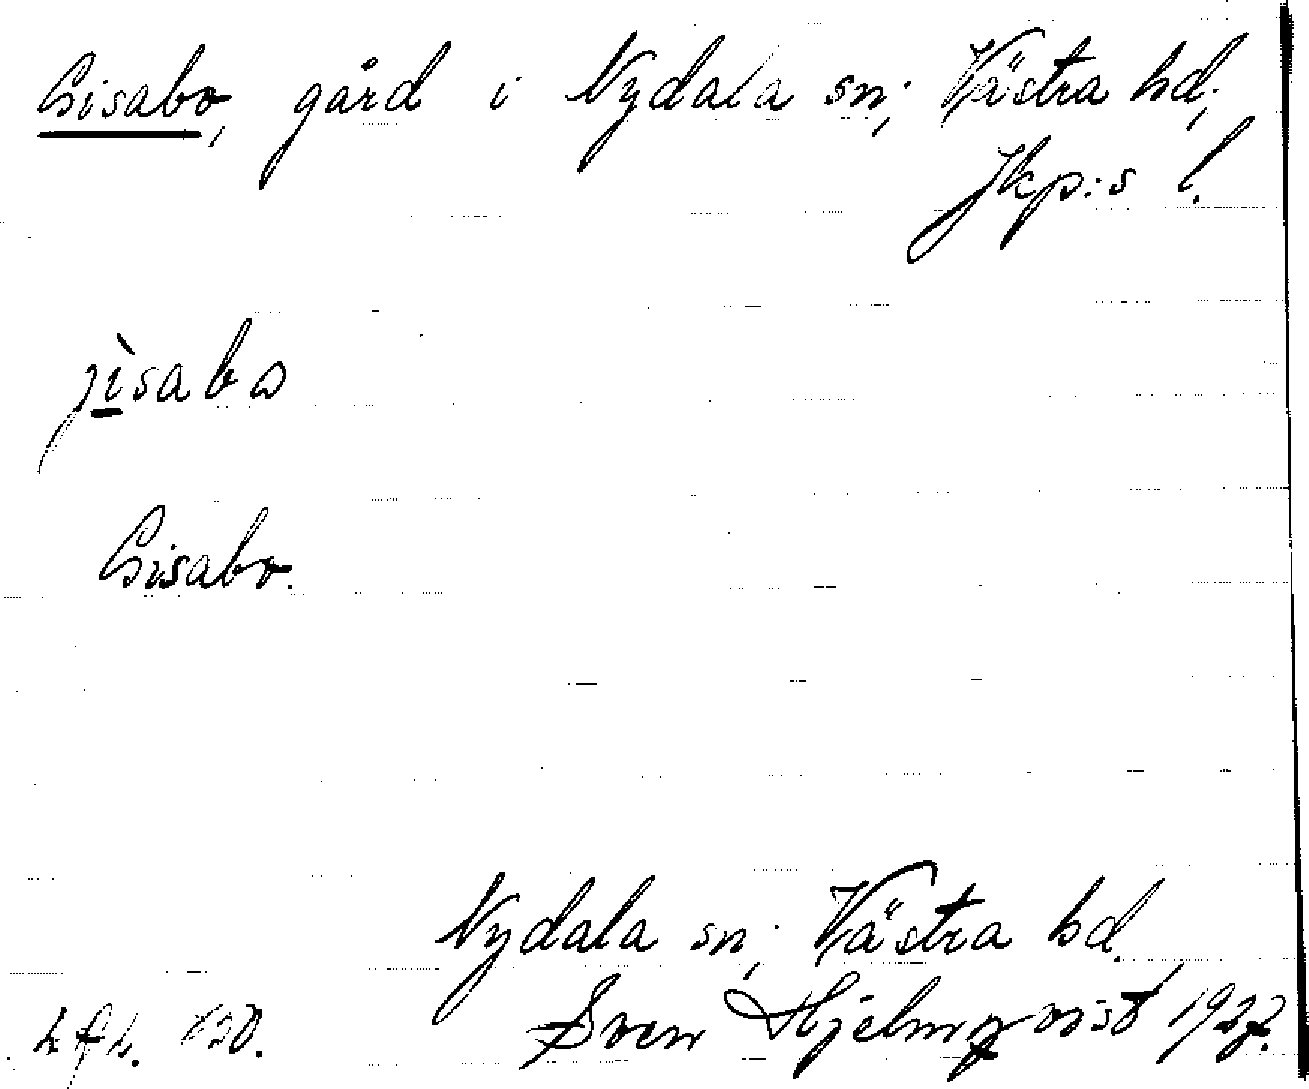 Gisabo, gård i Nydala sn; Västra hd;
Jkp:s l.
jìsabo
Gisabo.
Nydala sn; Västra hd.
Sven Hjelmqvist 1922.